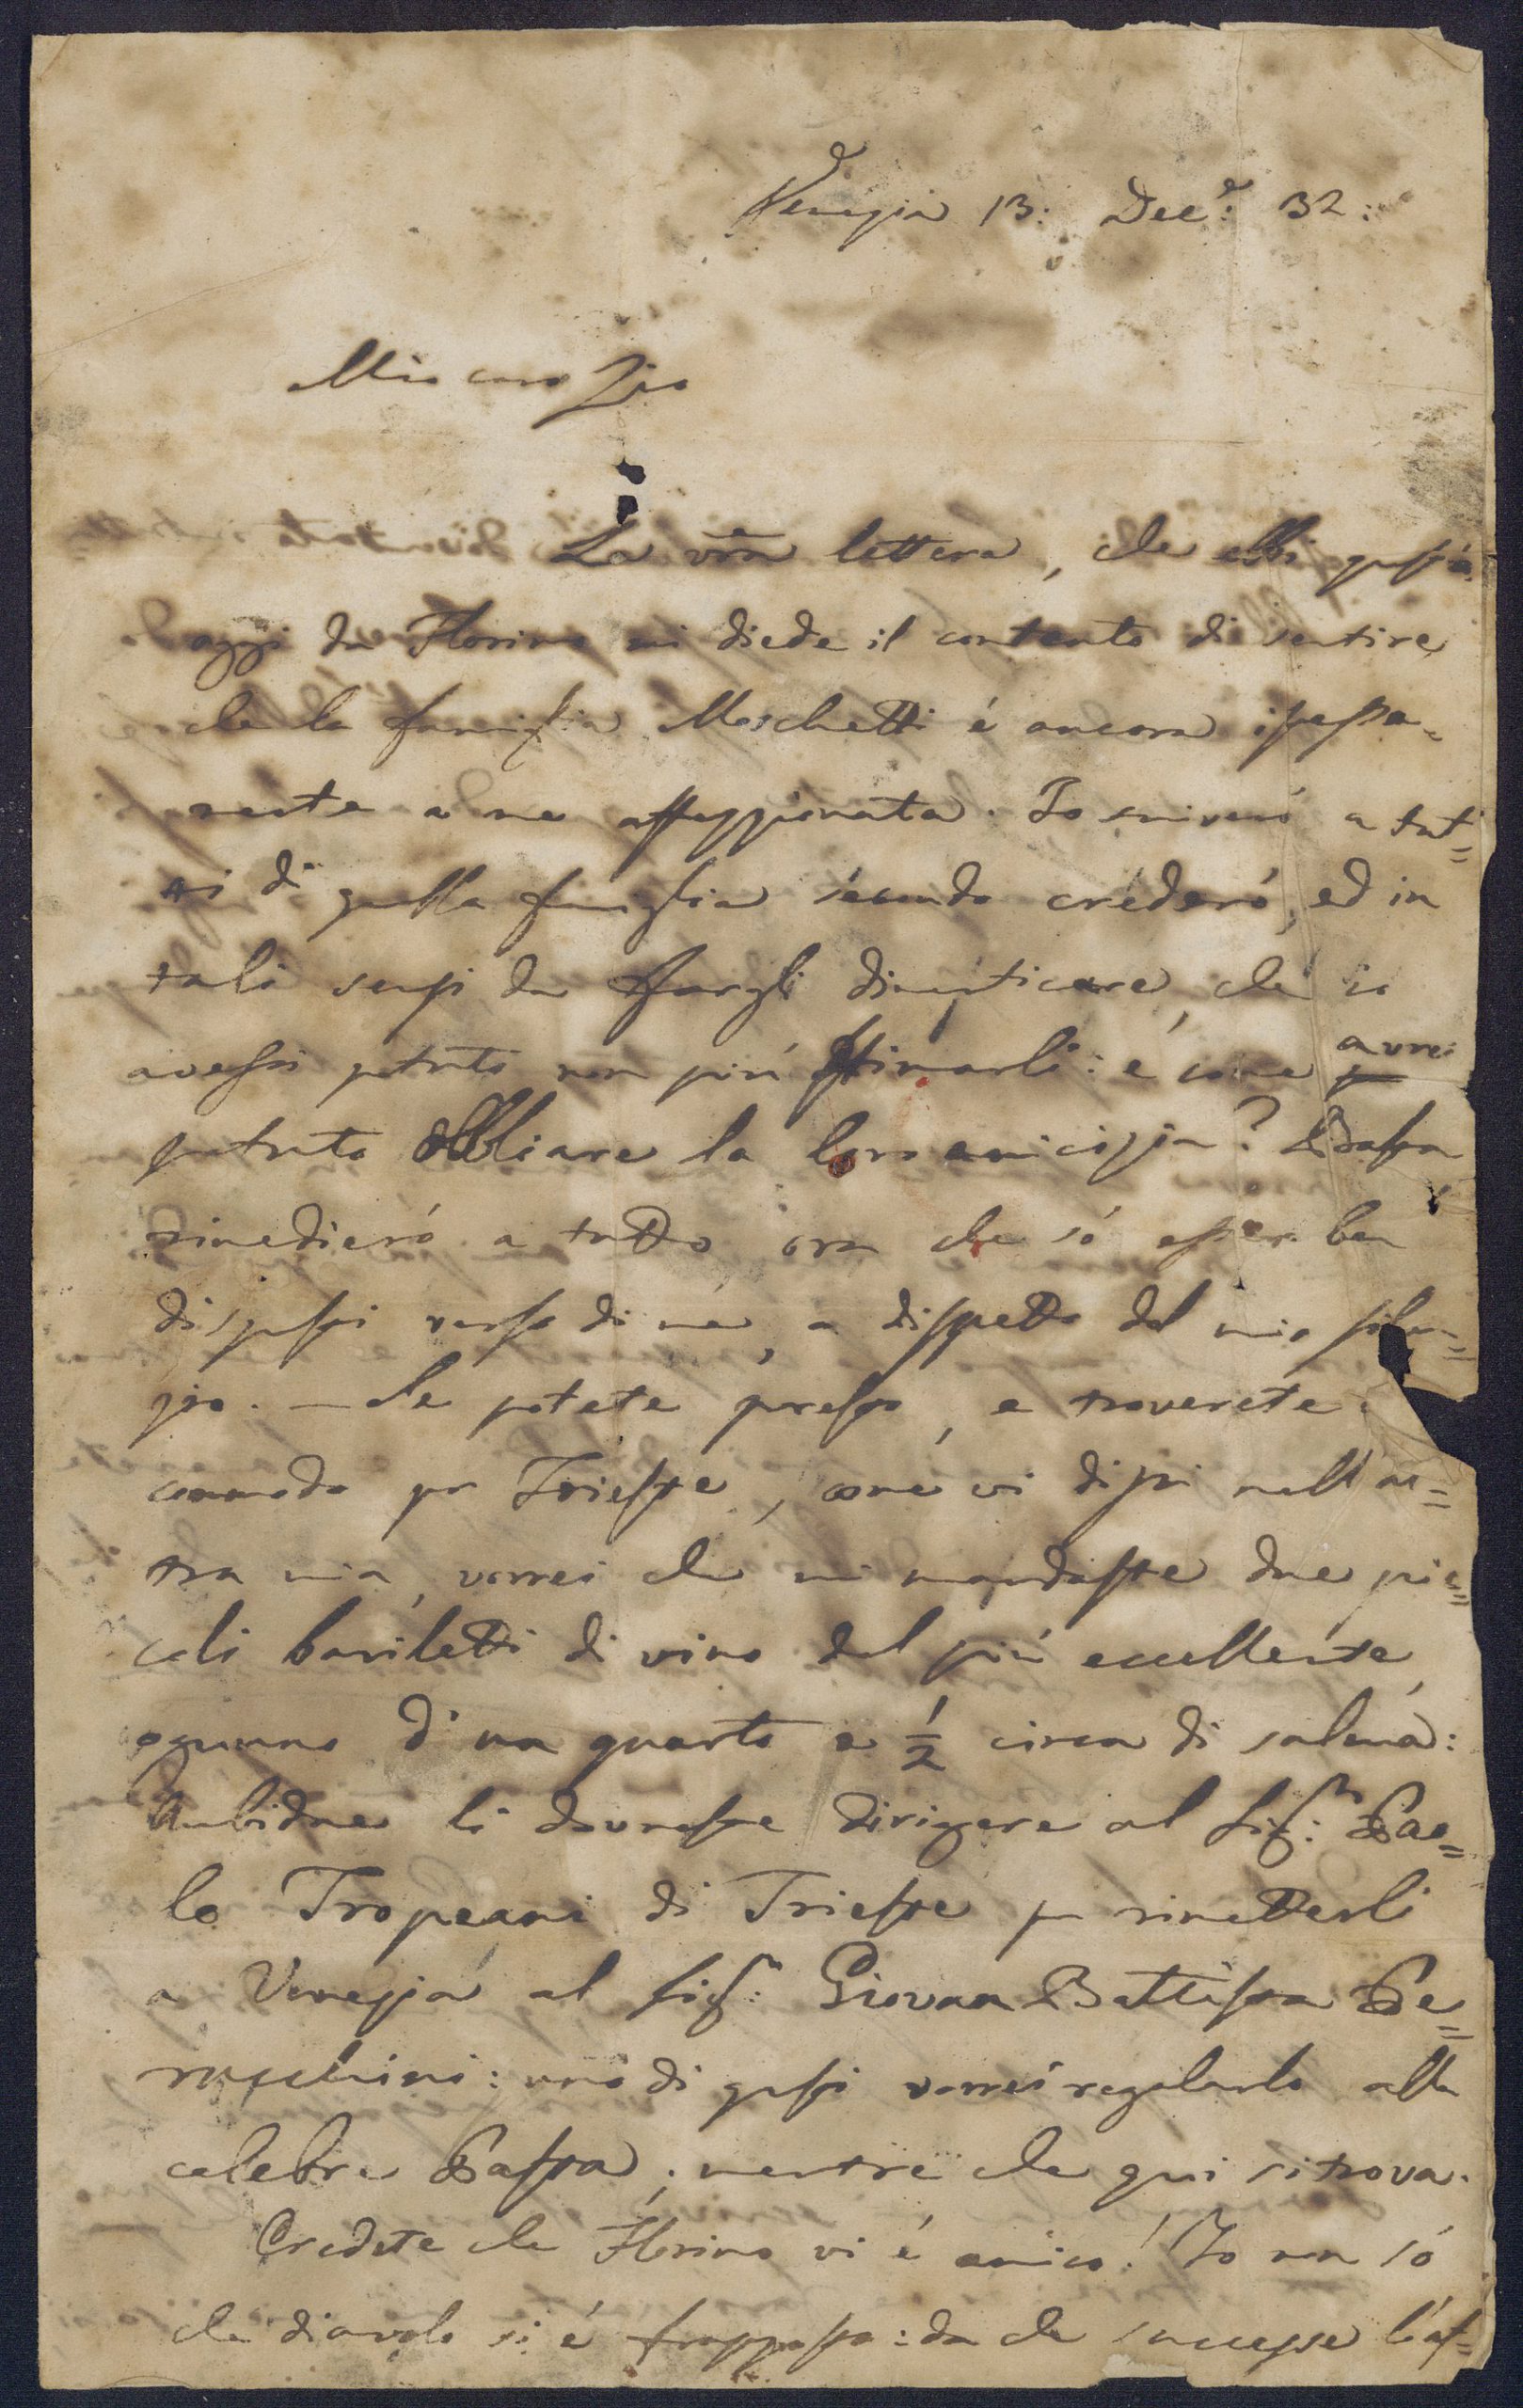 Venezia 13: Dec.e: 32:
Mio caro Zio
La vr̃a lettera, che ebbi quest'
oggi da Florimo mi diede il contento di sentire
che la famiglia Moschetti é ancora
mente a me affezzionata. Io scriveró a tut=
ti di quella famiglia secondo crederó, ed in
tali sensi da fargli dimenticare, che io
avessi potuto non piú stimarli: e come avrei
potuto obbliare la loro amicizia? Basta
rimedieró a tutto ora che só esser ben
disposti verso di me, a dispetto del mio silen=
zio. — Se potete presto, e troverete
commodo per Trieste, come vi dissi nell'al=
tra mia, vorrei che mi mandaste due pic=
coli bariletti di vino del piú eccellente,
ognuno d'un quarto e ½ circa di salma:
Ambidue li dovreste dirigere al Sig.r: Pao=
lo Tropeani di Trieste per rimetterli
a Venezia al Sig.r: Giovan Battista Pe=
rucchini: uno di questi vorrei regalarlo alla
celebre Pasta, mentre che qui si trova.
Credete che Florimo vi é amico! Io non só
che diavolo si é frapposto: da che successe l'af=